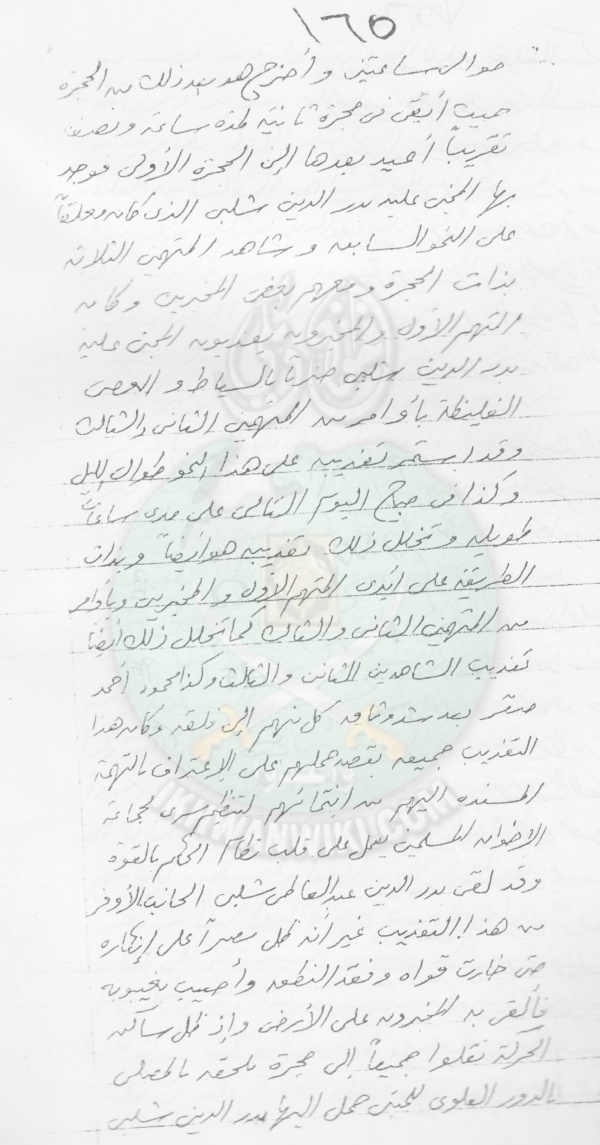 ١٦٥
حوالى ساعتين وأخرج هو بعد ذلك من الحجرة
حيث أبقى فى حجرة ثانية لمدة ساعة ونصف
تقريباً أعيد بعدها إلى الحجرة الأولى فوجد
بها المجنى عليه بدر الدين شلبى الذى كان معلقاً
على النحو السابق وشاهد المتهمين الثلاثة
بذات الحجرة ومعهم بعض المخبرين وكان
المتهم الأول والمخبرون يعذبون المجنى عليه
بدر الدين شلبى ضرباً بالسياط والعصى
الغليظة بأوامر من المتهمين الثانى والثالث
وقد استمر تعذيبه على هذا النحو طوال الليل
وكذا فى صباح اليوم التالى على مدى ساعات
طويلة وتخلل ذلك تعذيبه هو أيضاً وبذات
الطريقة على أيدى المتهم الأول والمخبرين وبأوامر
من المتهمين الثانى والثالث كما تخلل ذلك أيضاً
تعذيب الشاهدين الثانى والثالث وكذا محمود أحمد
صقر بعد شد وثاق كل منهم إلى فلقه وكان هذا
التعذيب جميعه بقصد حملهم على الاعتراف بالتهمة
المسنده اليهم من انتمائهم لتنظيم سرى لجماعة
الاخوان المسلمين يعمل على قلب نظام الحكم بالقوة
وقد لقى بدر الدين عبد العاطى شلبى الجانب الأوفر
من هذا التعذيب غير أنه ظل مصراً على إنكاره
حتى خارت قواه وفقد النطق وأصيب بغيبوبه
فألقى به المخبرون على الأرض وإذ ظل ساكن
الحركة نقلوا جميعاً إلى حجرة ملحقه بالمصلى
بالدور العلوى للمبنى حمل اليها بدر الدين شلبى
IKHWANWIKI.COM